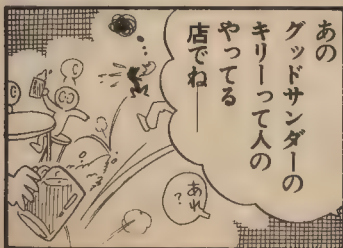 あの
グッドサンダーの
キリーって人の
やってる
店でね――
あれ
?
C
C
CO